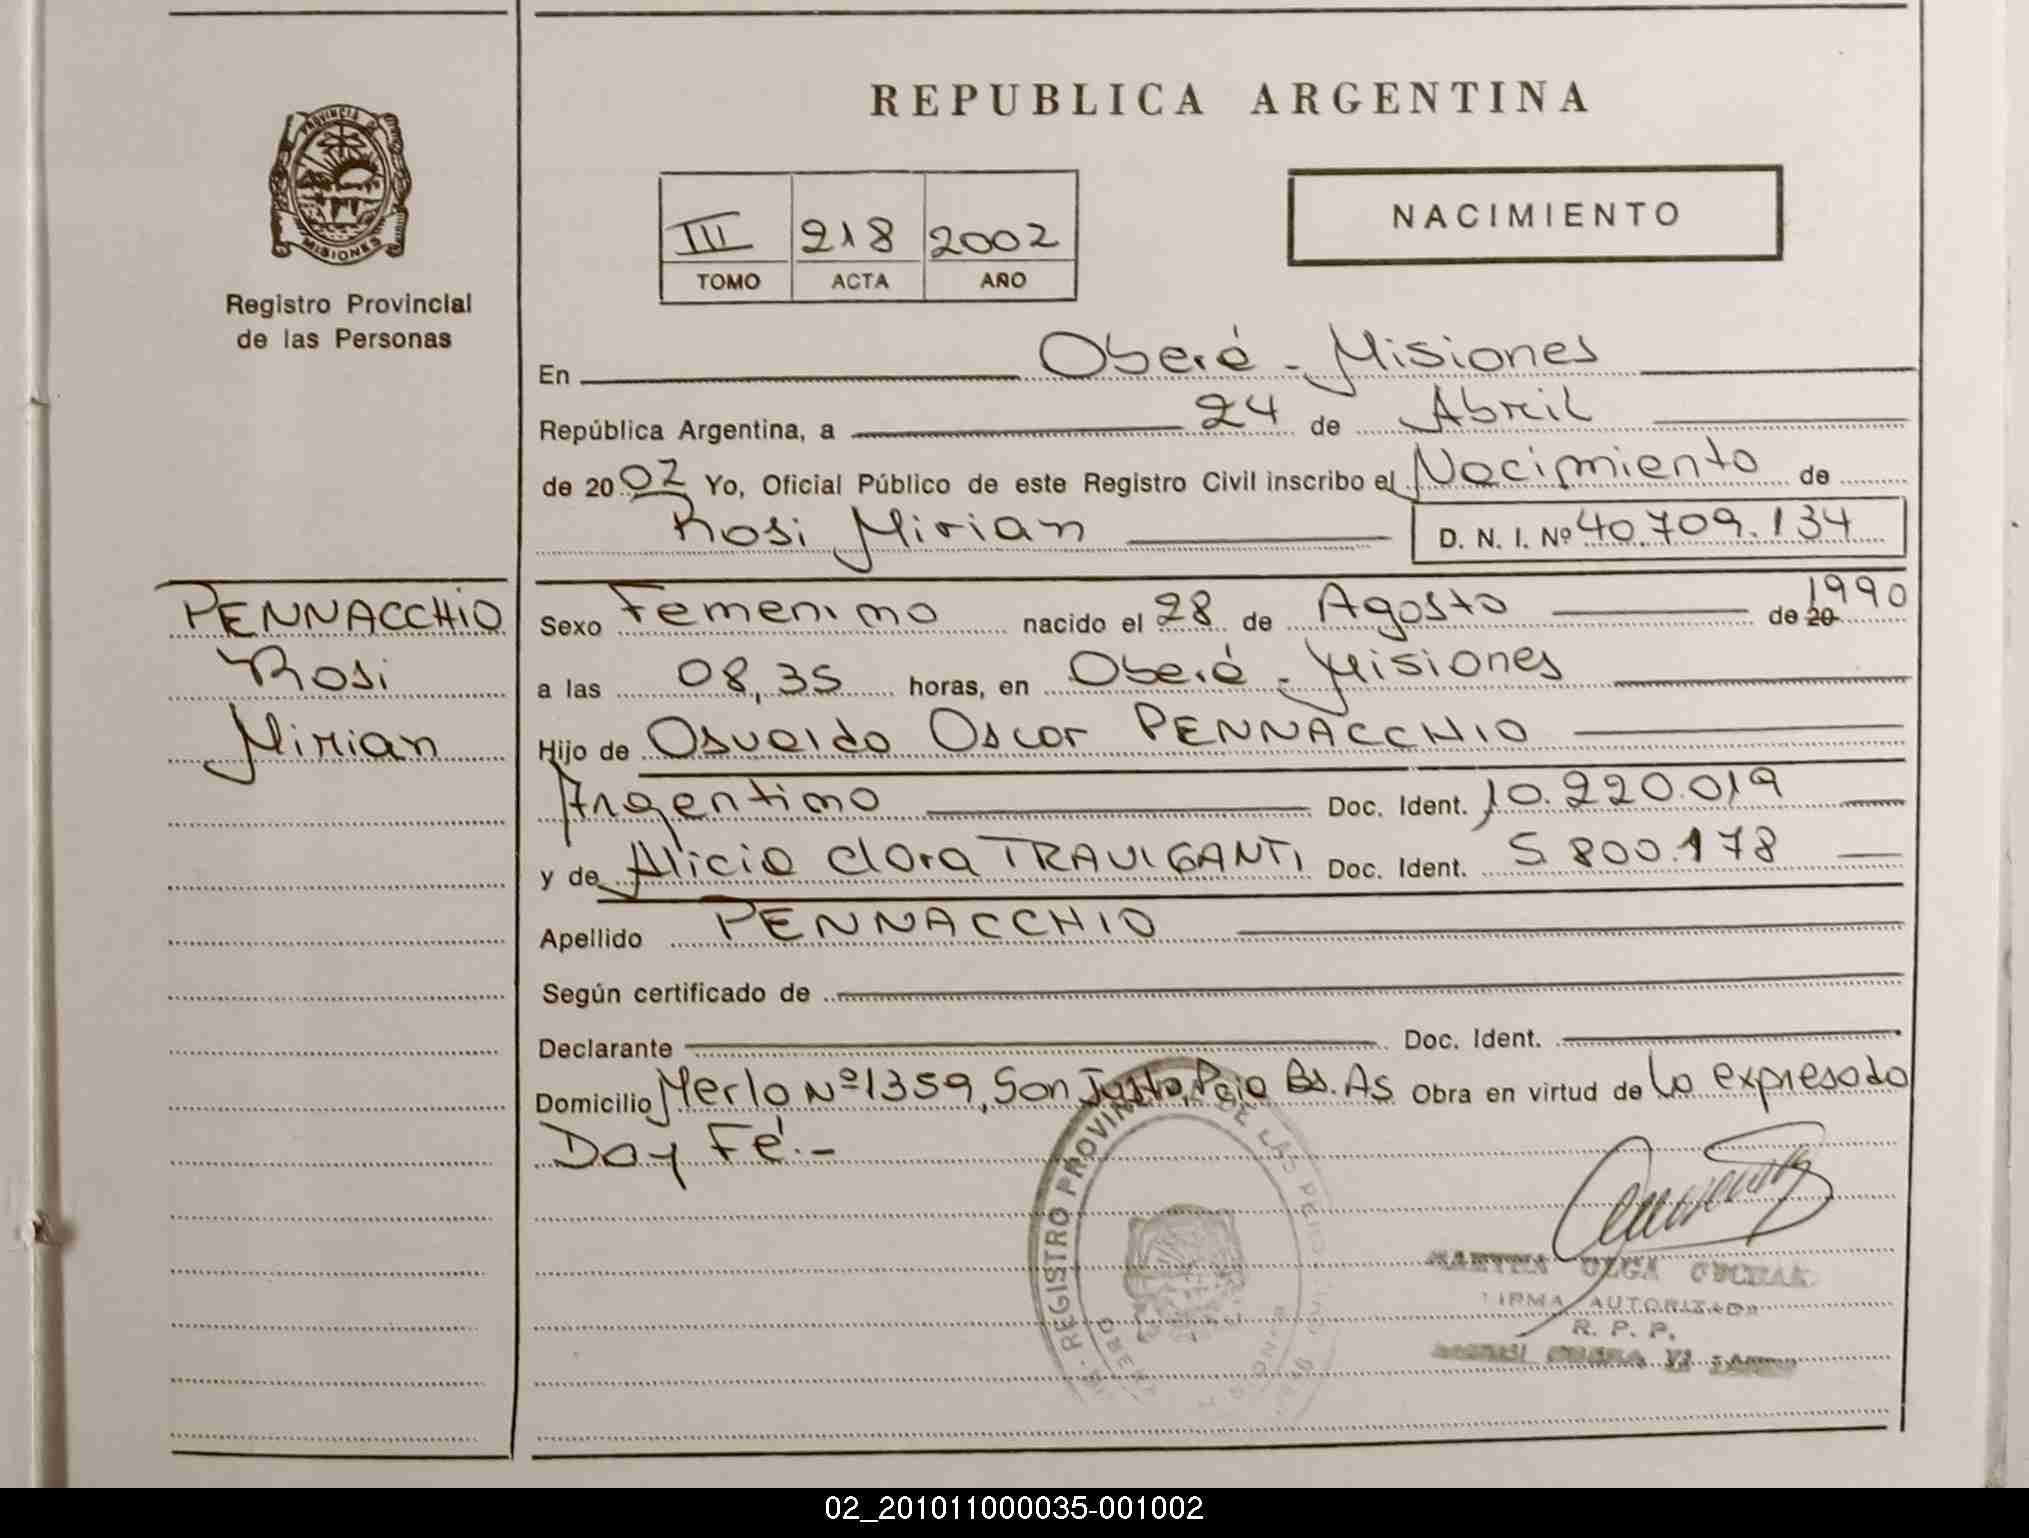 REPUBLICA ARGENTINA
PROVINCIA DE
MISIONES
Registro Provincial
de las Personas
NACIMIENTO
III 218 2002
TOMO ACTA AÑO
En Oberá - Misiones
República Argentina, a 24 de Abril
de 2002 Yo, Oficial Público de este Registro Civil inscribo el Nacimiento de
Rosi Mirian D. N. I. Nº 40.709.134
PENNACCHIO
Rosi
Mirian
Sexo Femenino nacido el 28 de Agosto de 20 1990
a las 08,35 horas, en Oberá - Misiones
Hijo de Osvaldo Oscar PENNACCHIO
Argentino Doc. Ident. 10.220.019
y de Alicia Clara TRAVIGANTI Doc. Ident. 5.800.178
Apellido PENNACCHIO
Según certificado de
Declarante Doc. Ident.
Domicilio Merlo Nº 1359, San Justo, Pcia Bs. As Obra en virtud de lo expresado
Doy Fé.-
REGISTRO PROVINCIAL DE LAS PERSONAS
OBERA
MISIONES
OLGA
FIRMA AUTORIZADA
R. P. P.
02_201011000035-001002